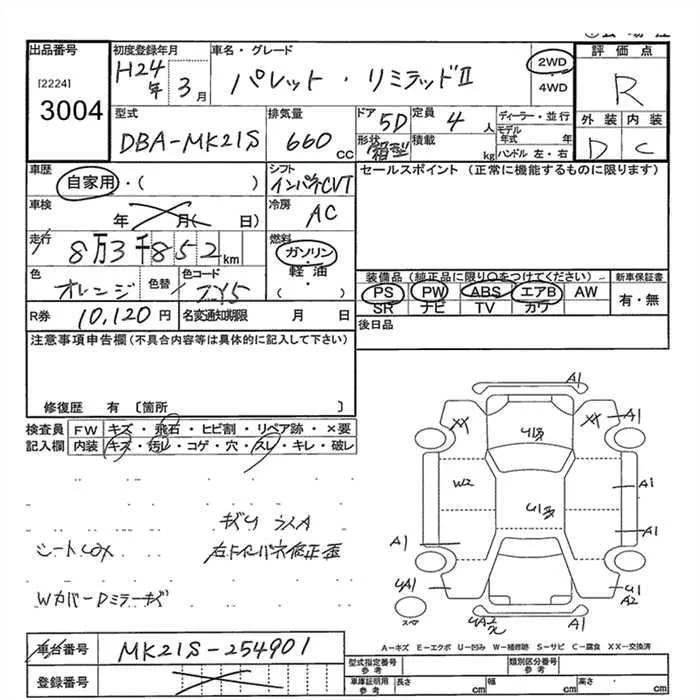 出品番号
[2224]
3004
初度登録年月
H24年 3月
車名・グレード
パレット・リミテッドII
2WD
・
4WD
評価点
R
外装 内装
D C
型式
DBA-MK21S
排気量
660 CC
ドア 5D
形状 箱型
定員 4人
積載 kg
ディーラー・並行
モデル年式 年
ハンドル 左・右
車歴
自家用・( )
シフト
インパネCVT
セールスポイント (正常に機能するものに限ります)
車検
年 月( 日)
冷房
AC
走行
8万3千852km
燃料
ガソリン
・
軽油
( )
色
オレンジ
色替
色コード
装備品 (純正品に限り○をつけてください)
新車保証書
PS PW ABS エアB AW
有・無
SR ナビ TV カワ
R券 10,120円
名変通知期限 月 日
後日品
注意事項申告欄(不具合内容等は具体的に記入して下さい)
修復歴 有 〔箇所 〕
検査員記入欄
FW キズ・飛石・ヒビ割・リペア跡・×要
内装 キズ・汚レ・コゲ・穴・スレ・キレ・破レ
WカバーDミラーキズ
A1
XX
XX
A1
W2
A1
A1
A1
A1
A2
スペア
A1
A-キズ E-エクボ U-凹み W-補修跡 S-サビ C-腐食 XX-交換済
車台番号
MK21S-254901
登録番号
型式指定番号
参考
類別区分番号
参考
車庫証明用
参考
長さ cm
幅 cm
高さ cm